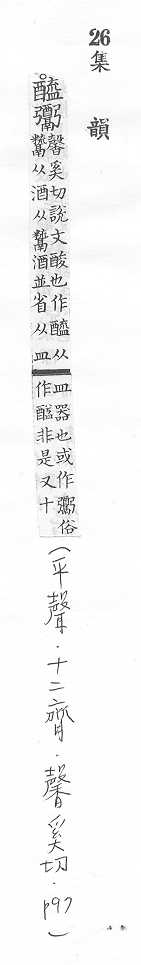 26 集韻
醯
馨奚切說文酸也作醯从
鬻从酒从鬻酒並省从皿
皿器也或作俗
作非是文十
(平聲．十二齊．馨奚切．p97)